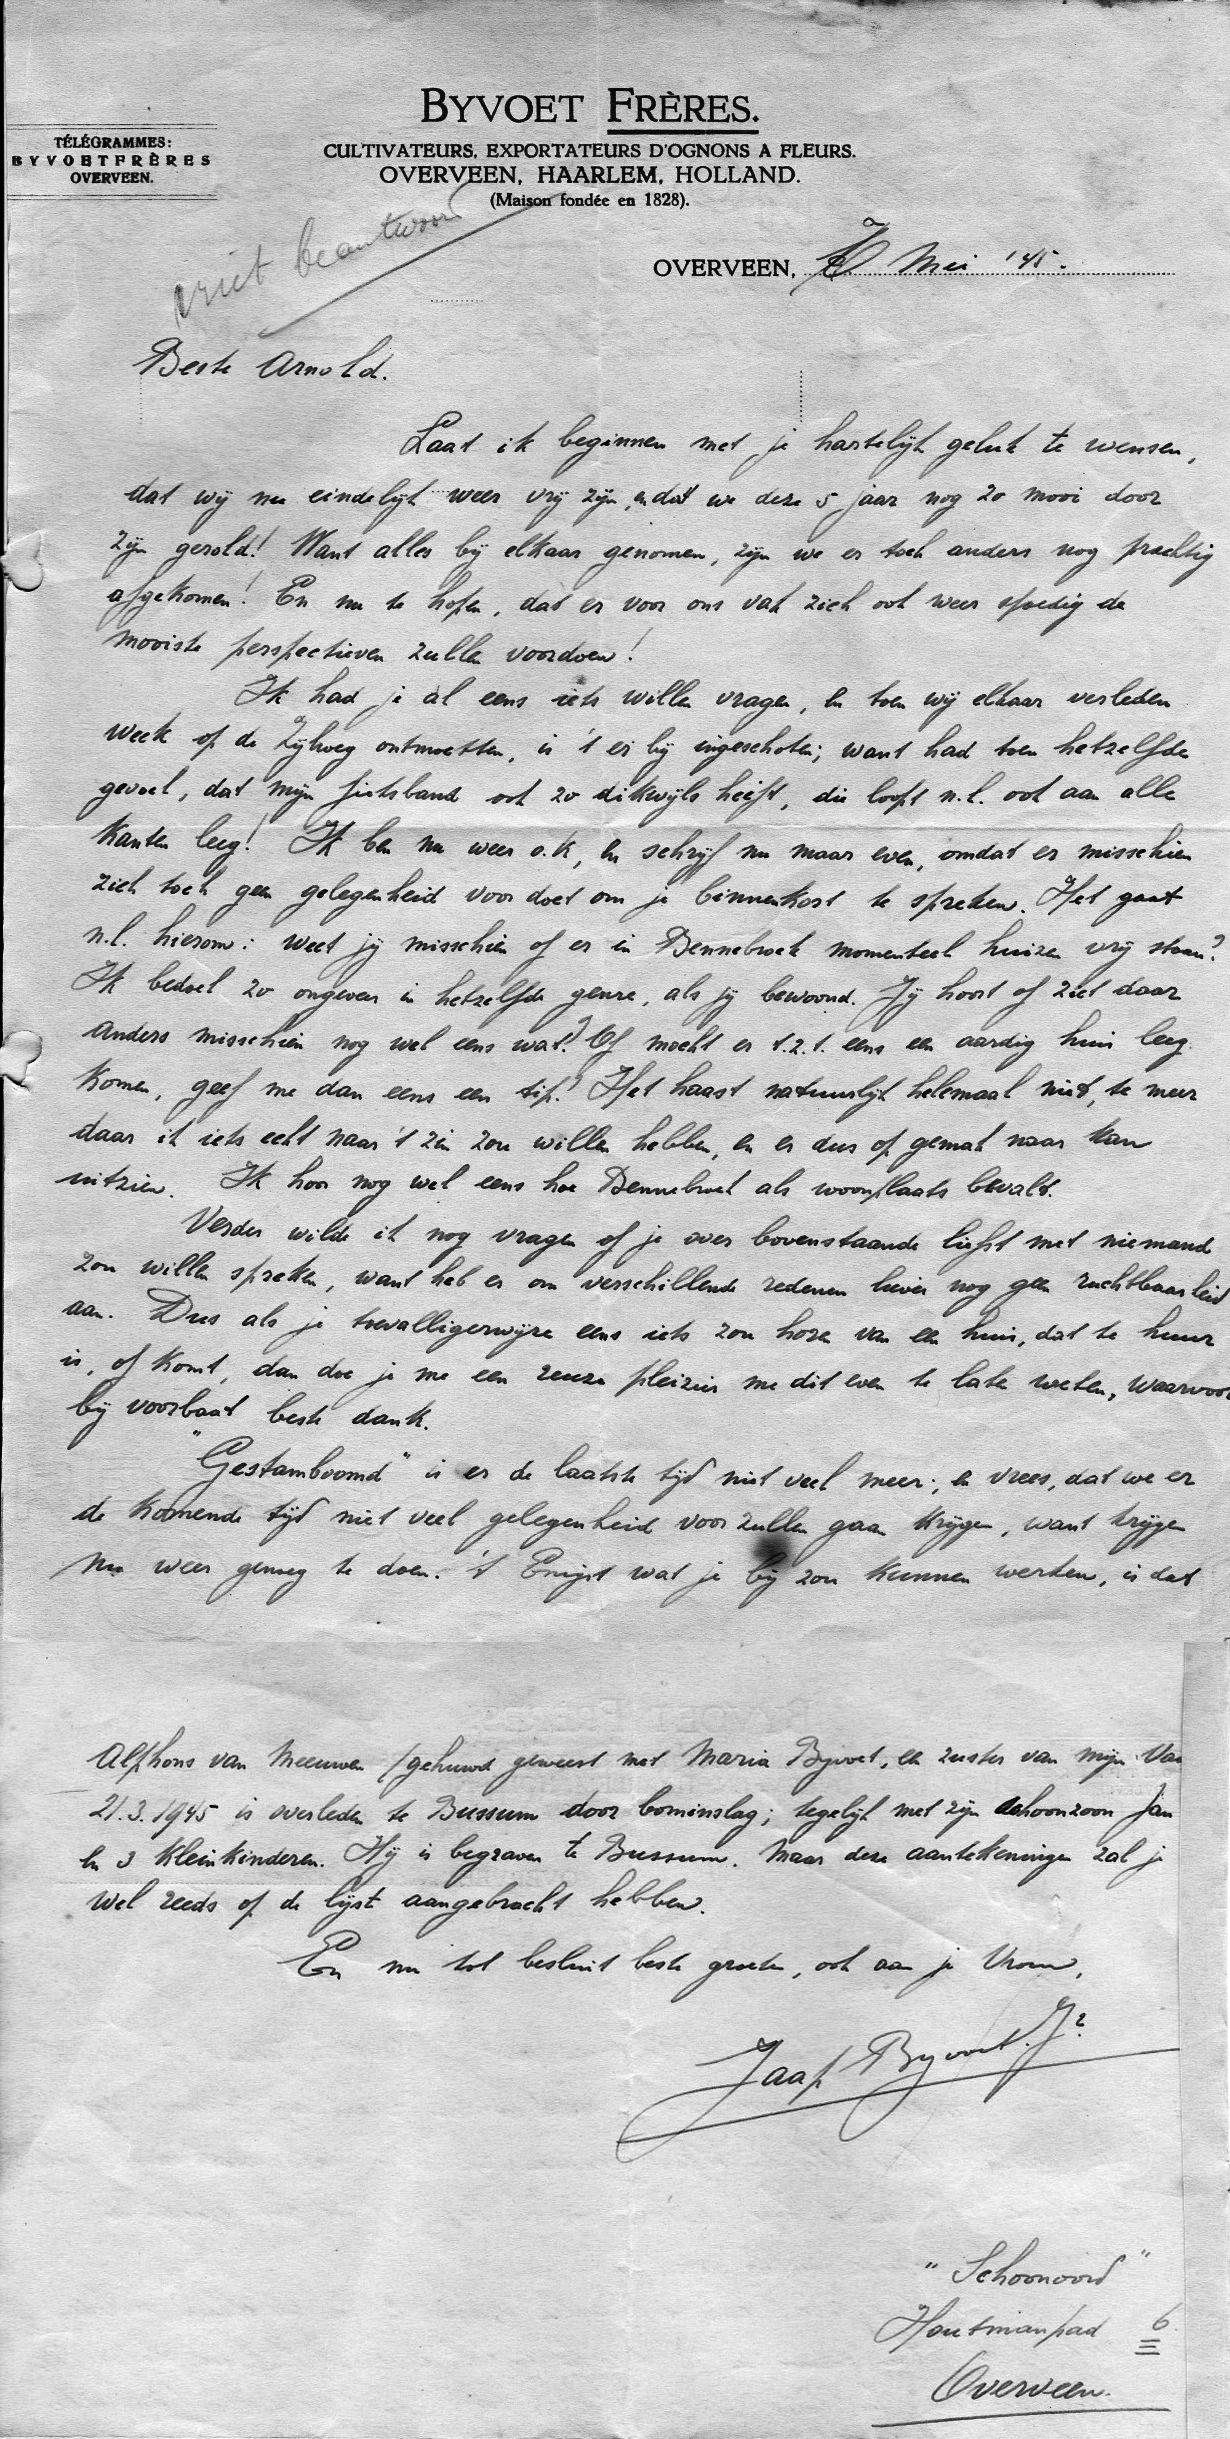 BYVOET FRÈRES.
CULTIVATEURS, EXPORTATEURS D'OGNONS A FLEURS.
OVERVEEN, HAARLEM, HOLLAND.
(Maison fondée en 1828).
TÉLÉGRAMMES:
BYVOETFRÈRES
OVERVEEN.
niet beantwoord
OVERVEEN, Mei '45.
Beste Arnold.
Laat ik beginnen met je hartelijk geluk te wensen,
dat wij nu eindelijk weer vrij zijn, en dat we deze 5 jaar nog zo mooi door
zijn gerold! Want alles bij elkaar genomen, zijn we er toch anders nog prachtig
afgekomen! En nu te hopen, dat er voor ons vak zich ook weer spoedig de
mooiste perspectieven zullen voordoen!
Ik had je al eens iets willen vragen, en toen wij elkaar verleden
week op de Zijlweg ontmoetten, is 't er bij ingeschoten; want had toen hetzelfde
gevoel, dat mijn fietsband ook zo dikwijls heeft, die loopt n.l. ook aan alle
kanten leeg! Ik ben nu weer o.k, en schrijf nu maar even, omdat er misschien
zich toch geen gelegenheid voor doet om je binnenkort te spreken. Het gaat
n.l. hierom: weet jij misschien of er in Bennebroek momenteel huizen vrij staan?
Ik bedoel zo ongeveer in hetzelfde genre, als jij bewoond. Jij hoort of ziet daar
anders misschien nog wel eens wat? Of mocht er t.z.t. eens een aardig huis leeg
komen, geef me dan eens een tip? Het haast natuurlijk helemaal niet, te meer
daar ik iets echt naar 't zin zou willen hebben, en er dus op gemak naar kan
uitzien. Ik hoor nog wel eens hoe Bennebroek als woonplaats bevalt.
Verder wilde ik nog vragen of je over bovenstaande liefst met niemand
zou willen spreken, want heb er om verschillende redenen liever nog geen ruchtbaarheid
aan. Dus als je toevalligerwijze eens iets zou horen van een huis, dat te huur
is, of komt, dan doe je me een reuze pleizier me dit even te laten weten, waarvoor
bij voorbaat beste dank.
"Gestamboomd" is er de laatste tijd niet veel meer; en vrees, dat we er
de komende tijd niet veel gelegenheid voor zullen gaan krijgen, want krijgen
nu weer genoeg te doen. 't Enigst wat je bij zou kunnen werken, is dat
Alphons van Meeuwen (gehuwd geweest met Maria Byvoet, een zuster van mijn Va
21.3.1945 is overleden te Bussum door bominslag; tegelijk met zijn schoonzoon Jan
en 3 kleinkinderen. Hij is begraven te Bussum. Maar deze aantekeningen zal je
wel reeds op de lijst aangebracht hebben.
En nu tot besluit beste groeten, ook aan je Vrouw,
Jaap Byvoet. Jr.
"Schoonoord"
Houtmanpad 6
Overveen.